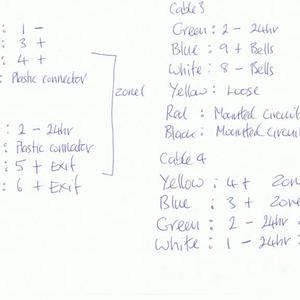 : 1 -
: 3 +
: 4 +
: Plastic connector
Zone1
: 2 - 24hr
: Plastic connector
: 5 + Exit
: 6 + Exit
Cable 3
Green : 2 - 24hr
Blue : 9 + Bells
White : 8 - Bells
Yellow : Loose
Red : Mounted Circuit
Black : Mounted Circuit
Cable 4
Yellow : 4 + Zone
Blue : 3 + Zone
Green : 2 - 24hr
White : 1 - 24hr